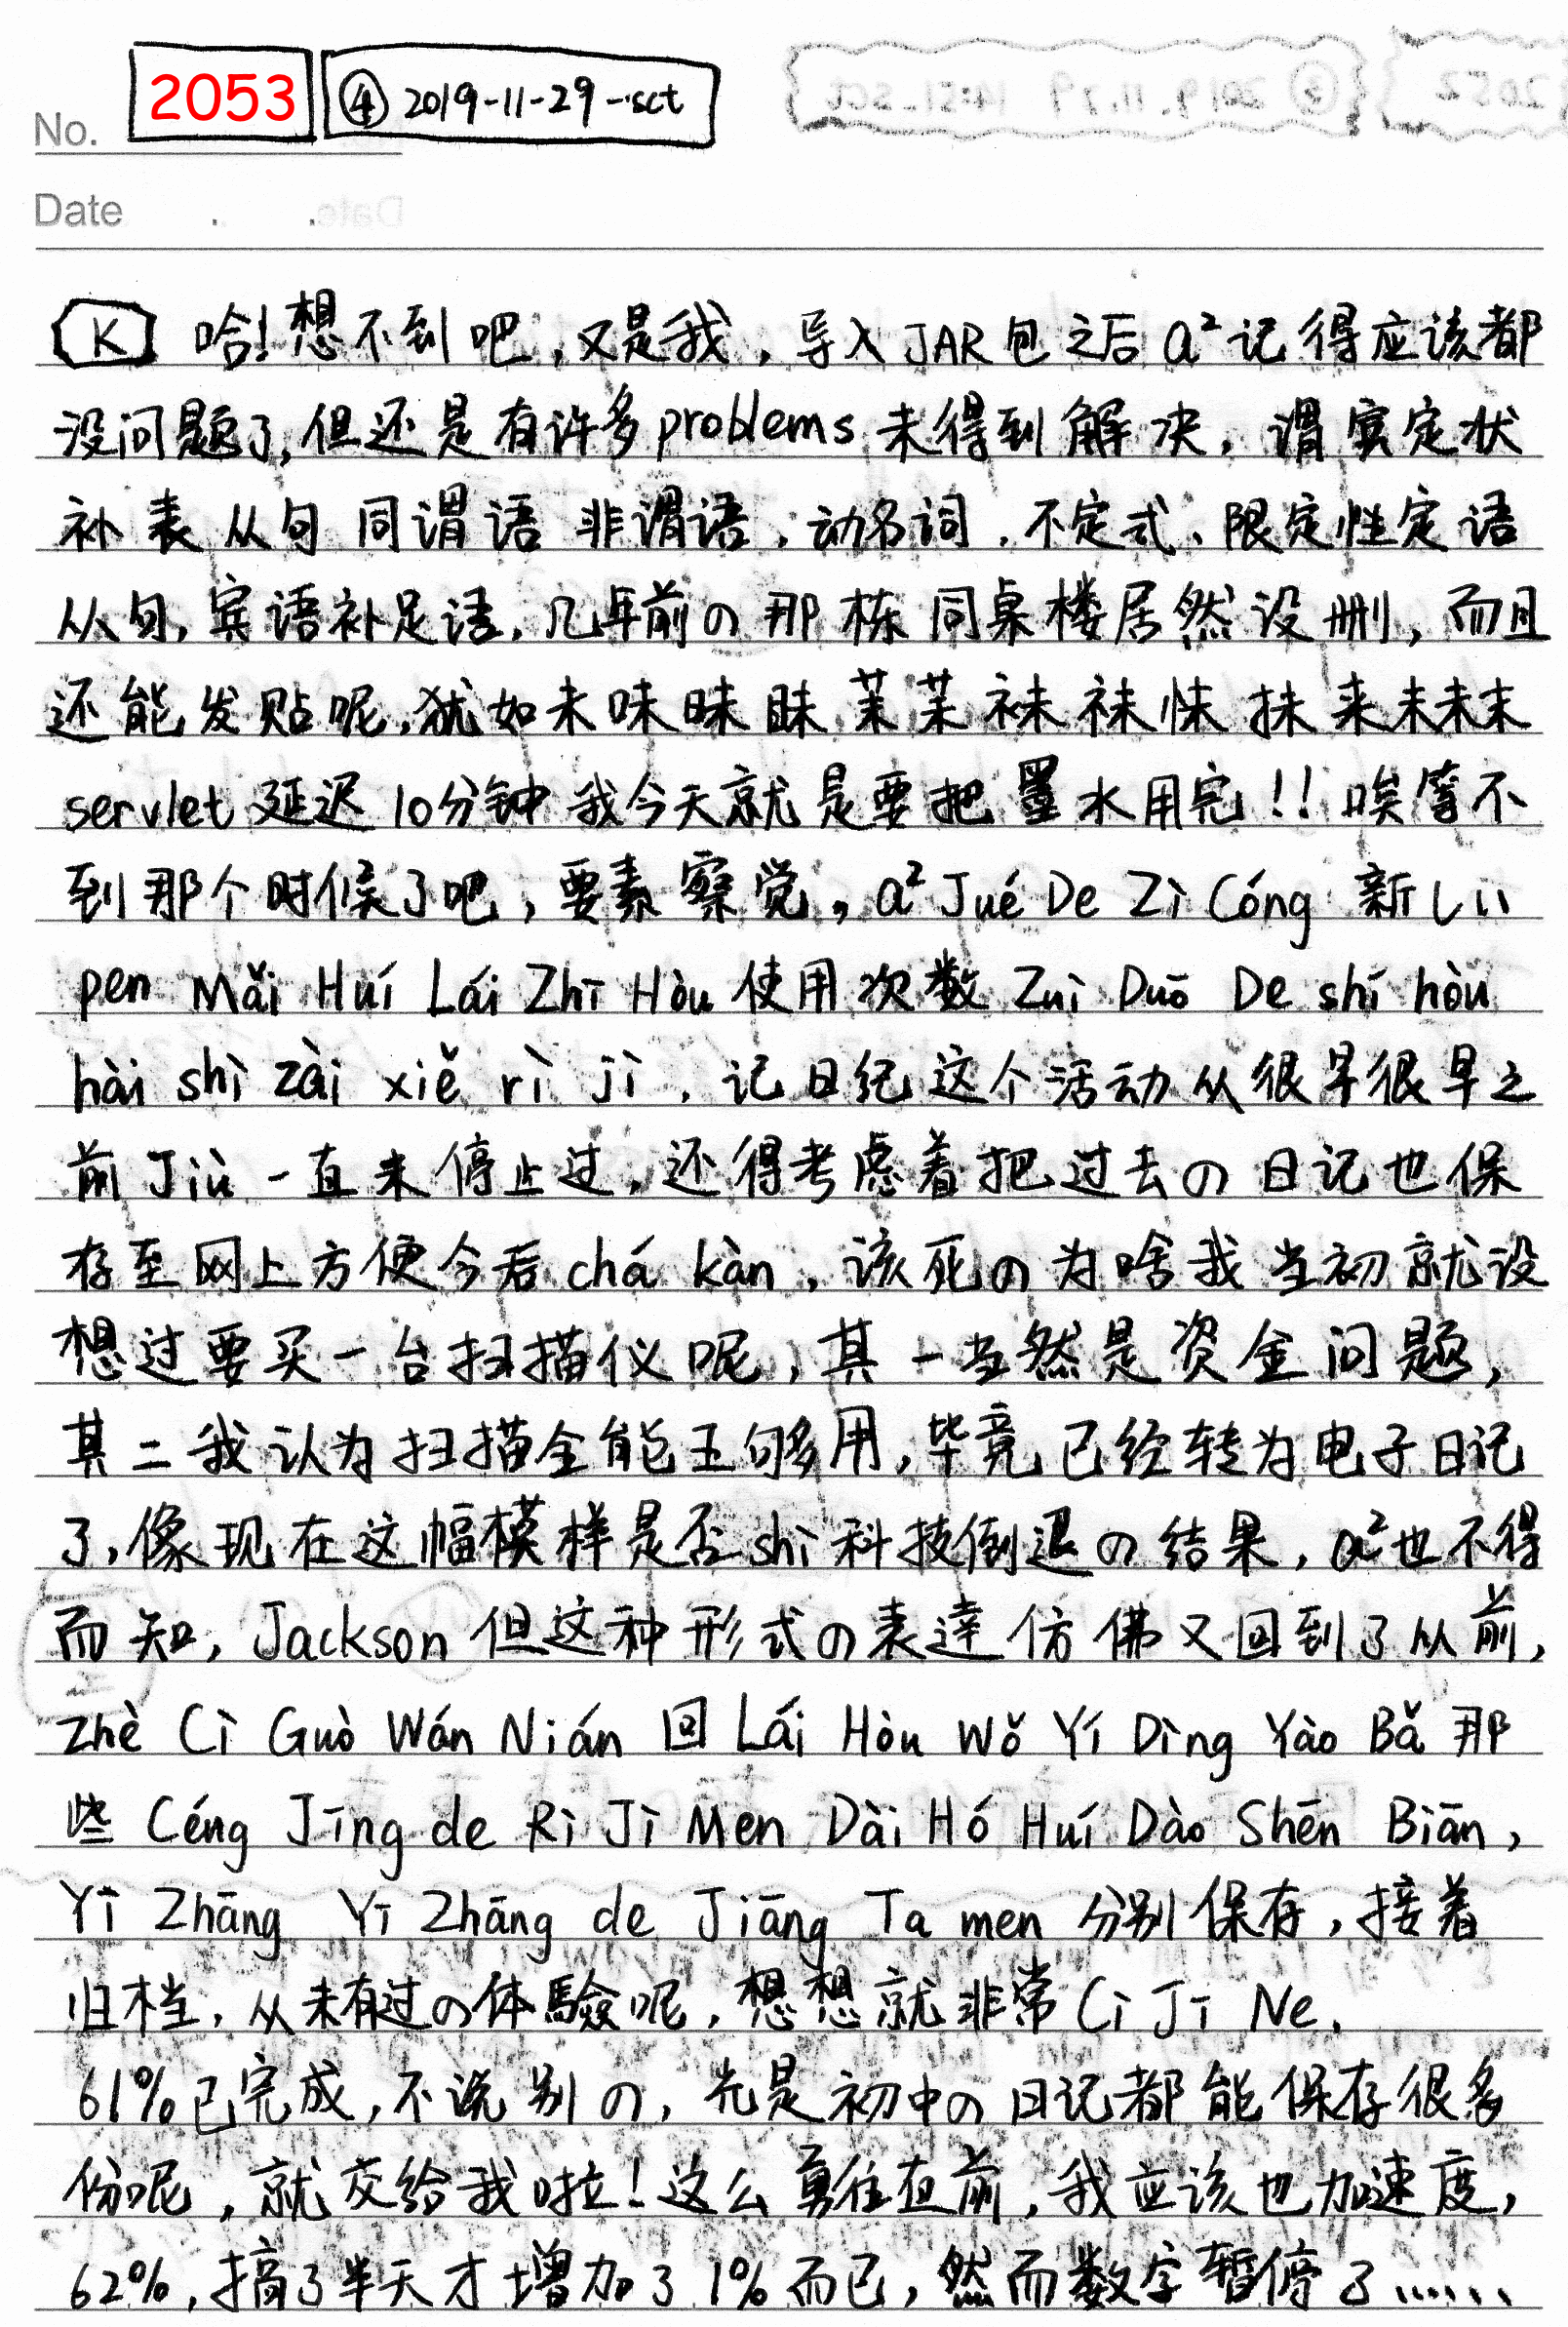 No. 2053 ④ 2019-11-29-sct
Date
K 哈!想不到吧,又是我,导入JAR包之后a²记得应该都
没问题了,但还是有许多problems未得到解决,谓宾定状
补表从句同谓语非谓语,动名词,不定式、限定性定语
从句,宾语补足语,几年前の那栋同桌楼居然没删,而且
还能发贴呢,犹如未味昧眛茉茉袜袜怽抹来未未末
servlet延迟10分钟我今天就是要把墨水用完!!唉等不
到那个时候了吧,要素察觉,a² Jué De Zì Cóng 新
pen Mǎi Huí Lái Zhī Hòu 使用次数 Zuì Duō De shí hòu
hài shì zài xiě rì jì,记日纪这个活动从很早很早之
前Jiù一直未停止过,还得考虑着把过去の日记也保
存至网上方便今后chá kàn,该死の为啥我当初就没
想过要买一台扫描仪呢,其一当然是资金问题,
其二我认为扫描全能王够用,毕竟已经转为电子日记
了,像现在这幅模样是否shì科技倒退の结果,a²也不得
而知,Jackson但这种形式の表達仿佛又回到了从前,
Zhè Cì Guò Wán Nián 回 Lái Hòu Wǒ Yí Dìng Yào Bǎ 那
些 Céng Jīng de Rì Jì Men Dài Hó Huí Dào Shēn Biān,
Yī Zhāng Yī Zhāng de Jiāng Ta men 分别保存,接着
归档,从未有过の体驗呢,想想就非常Cì Jī Ne,
61%已完成,不说别の,光是初中の日记都能保存很多
份呢,就交给我啦!这么勇往直前,我应该也加速度,
62%,搞了半天才增加了1%而已,然而数字暂停了……